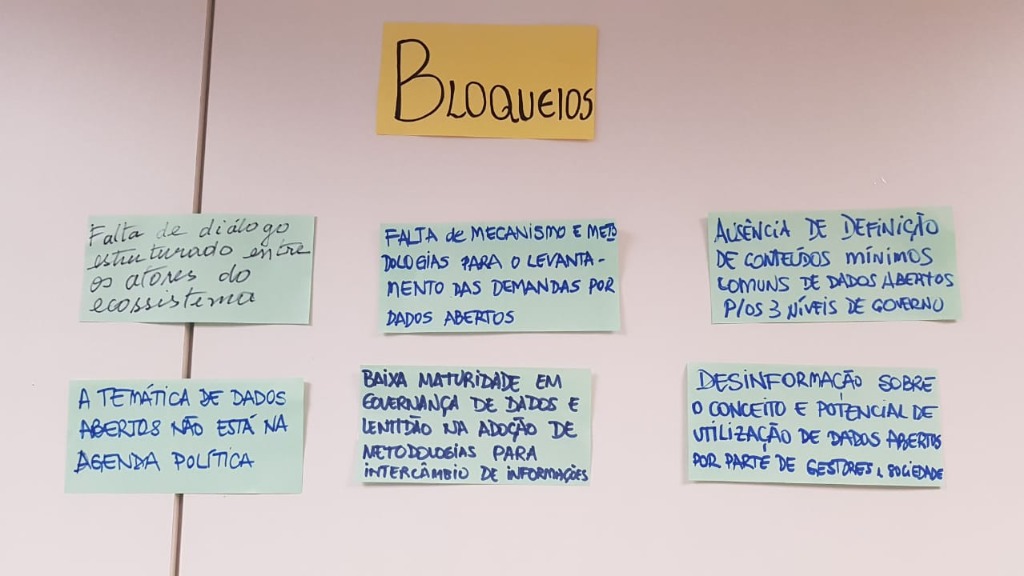 BLOQUEIOS
Falta de diálogo
estruturado entre
os atores do
ecossistema
FALTA de MECANISMO E METO
DOLOGIAS PARA O LEVANTA-
MENTO DAS DEMANDAS POR
DADOS ABERTOS
AUSÊNCIA DE DEFINIÇÃO
DE CONTEÚDOS MÍNIMOS
COMUNS DE DADOS ABERTOS
P/OS 3 NÍVEIS DE GOVERNO
A TEMÁTICA DE DADOS
ABERTOS NÃO ESTÁ NA
AGENDA POLÍTICA
BAIXA MATURIDADE EM
GOVERNANÇA DE DADOS E
LENTIDÃO NA ADOÇÃO DE
METODOLOGIAS PARA
INTERCÂMBIO DE INFORMAÇÕES
DESINFORMAÇÃO SOBRE
O CONCEITO E POTENCIAL DE
UTILIZAÇÃO DE DADOS ABERTOS
POR PARTE DE GESTORES E SOCIEDADE